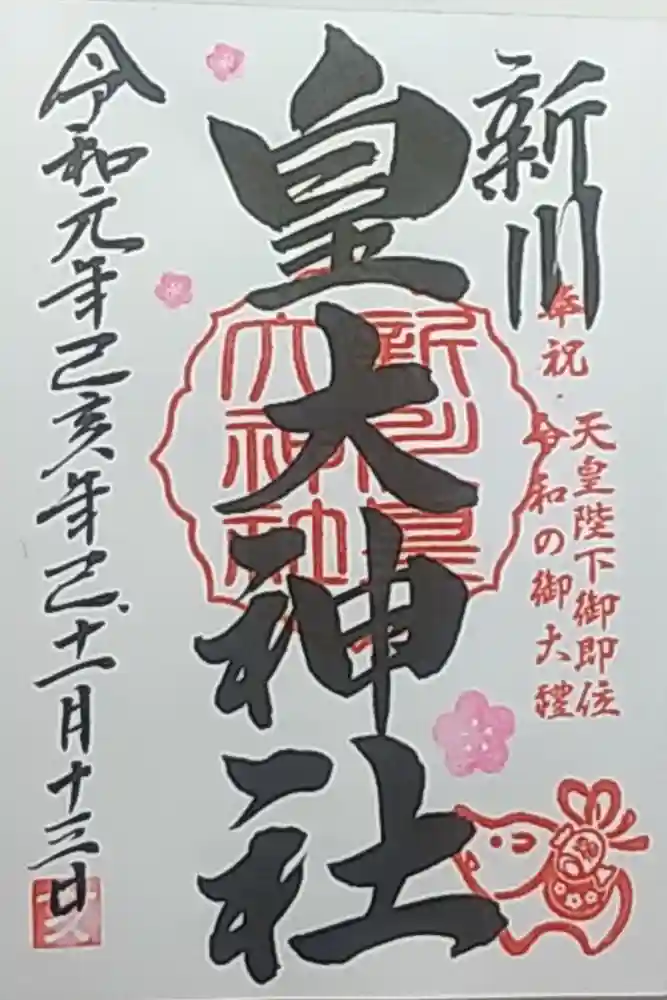 新川
奉祝
天皇陛下御即位
令和の御大禮
皇大神社
新川皇
大神社
令和元年己亥年己、十一月十三日
亥